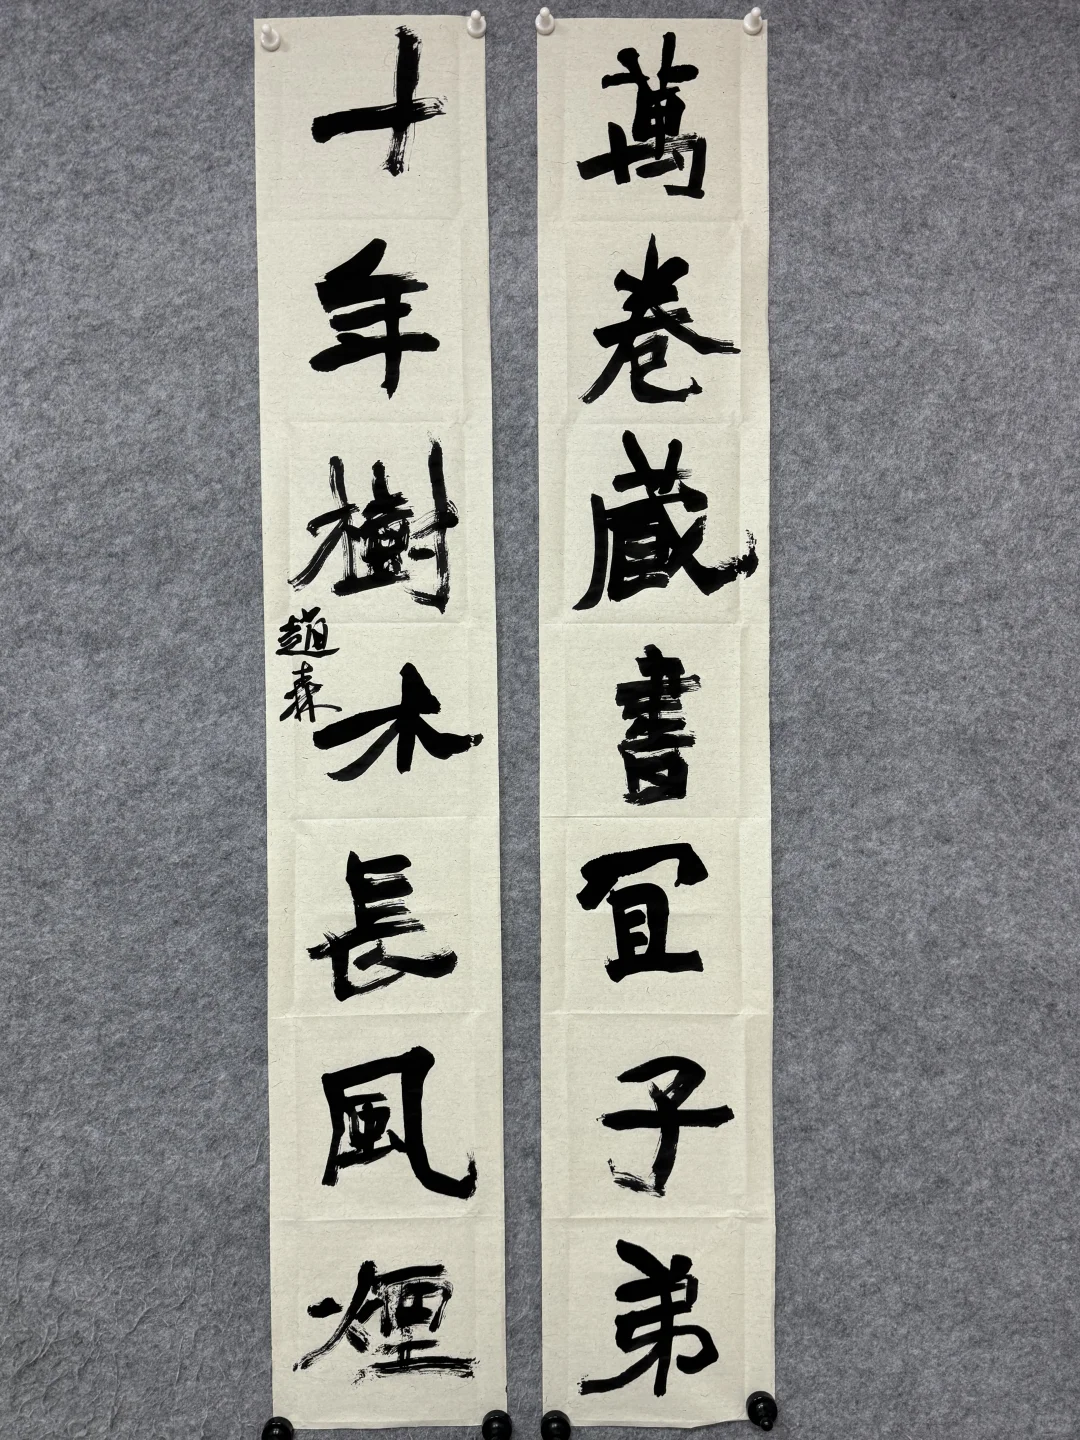 萬卷藏書宜子弟
十年樹木長風煙
趙森